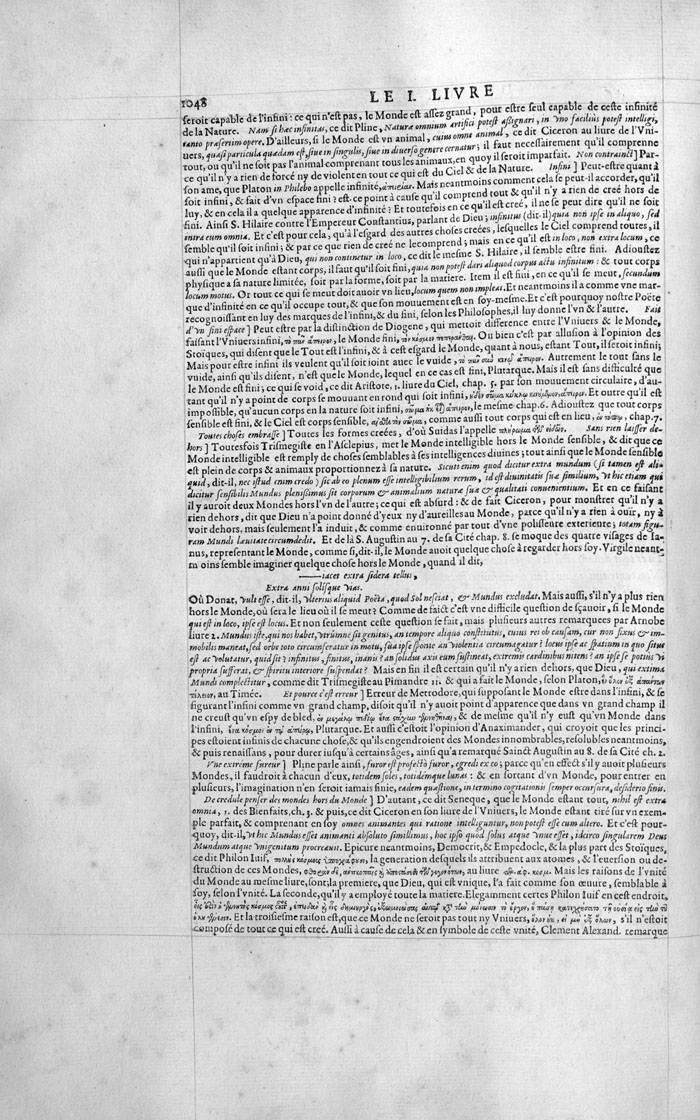 1048
LE I. LIVRE
seroit capable de l'infini: ce qui n'est pas, le Monde est assez grand, pour estre seul capable de ceste infinité
de la Nature. Nam si hæc infinitas, ce dit Pline, Natura omnium artifici potest assignari, in vno facilius potest intelligi,
tanto præsertim opere. D'ailleurs, si le Monde est vn animal, cuius omne animal, ce dit Ciceron au liure de l'Vni-
uers, quasi particula quædam est, siue in singulis, siue in diuerso genere cernatur; il faut necessairement qu'il comprenne
tout, ou qu'il ne soit pas l'animal comprenant tous les animaux, en quoy il seroit imparfait. Non contraint] Par-
ce qu'il n'y a rien de forcé ny de violent en tout ce qui est du Ciel & de la Nature. Infini] Peut-estre quant à
son ame, que Platon in Philebo appelle infinité, Mais neantmoins comment cela se peut-il accorder, qu'il
soit infini, & fait d'vn espace fini? est-ce point à cause qu'il comprend tout & qu'il n'y a rien de creé hors de
luy, & en cela il a quelque apparence d'infinité? Et toutefois en ce qu'il est creé, il ne se peut dire qu'il ne soit
fini. Ainsi S. Hilaire contre l'Empereur Constantius, parlant de Dieu; infinitus (dit-il) quia non ipse in aliquo, sed
intra eum omnia. Et c'est pour cela, qu'à l'esgard des autres choses creées, lesquelles le Ciel comprend toutes, il
semble qu'il soit infini; & par ce que rien de creé ne le comprend; mais en ce qu'il est in loco, non extra locum, ce
qui n'appartient qu'à Dieu, qui non continetur in loco, ce dit le mesme S. Hilaire, il semble estre fini. Adioustez
aussi que le Monde estant corps, il faut qu'il soit fini, quia non potest dari aliquod corpus actu infinitum: & tout corps
physique a sa nature limitée, soit par la forme, soit par la matiere. Item il est fini, en ce qu'il se meut, secundum
locum motus. Or tout ce qui se meut doit auoir vn lieu, locum quem non impleat. Et neantmoins il a comme vne mar-
que d'infinité en ce qu'il occupe tout, & que son mouuement est en soy-mesme. Et c'est pourquoy nostre Poëte
recognoissant en luy des marques de l'infini, & du fini, selon les Philosophes, il luy donne l'vn & l'autre. Fait
d'vn fini espace] Peut estre par la distinction de Diogene, qui mettoit difference entre l'Vniuers & le Monde,
faisant l'Vniuers infini, le Monde fini, Ou bien c'est par allusion à l'opinion des
Stoïques, qui disent que le Tout est l'infini, & à cest esgard le Monde, quant à nous, estant Tout, il seroit infini;
Mais pour estre infini ils veulent qu'il soit ioint auec le vuide, Autrement le tout sans le
vuide, ainsi qu'ils disent, n'est que le Monde, lequel en ce cas est fini, Plutarque. Mais il est sans difficulté que
le Monde est fini; ce qui se void, ce dit Aristote, 1. liure du Ciel, chap. 5. par son mouuement circulaire, d'au-
tant qu'il n'y a point de corps se mouuant en rond qui soit infini, Et outre qu'il est
impossible, qu'aucun corps en la nature soit infini, le mesme chap. 6. Adioustez que tout corps
sensible est fini, & le Ciel est corps sensible, comme aussi tout corps qui est en lieu, chap. 7.
Toutes choses embrasse] Toutes les formes creées, d'où Suidas l'appelle Sans rien laisser de-
hors] Toutesfois Trismegiste en l'Asclepius, met le Monde intelligible hors le Monde sensible, & dit que ce
Monde intelligible est remply de choses semblables à ses intelligences diuines; tout ainsi que le Monde sensible
est plein de corps & animaux proportionnez à sa nature. Sicuti enim quod dicitur extra mundum (si tamen est ali-
quid, dit-il, nec istud enim credo) sic ab eo plenum esse intelligibilium rerum, id est diuinitati suæ similium, vt hic etiam qui
dicitur sensibilis Mundus plenissimus sit corporum & animalium naturæ suæ & qualitati conuenientium. Et en ce faisant
il y auroit deux Mondes hors l'vn de l'autre; ce qui est absurd: & de fait Ciceron, pour monstrer qu'il n'y a
rien dehors, dit que Dieu n'a point donné d'yeux ny d'aureilles au Monde, parce qu'il n'y a rien à ouïr, ny à
voir dehors, mais seulement l'a induit, & comme enuironné par tout d'vne polisseure exterieure; totam figu-
ram Mundi lauitate circumdedit. Et de là S. Augustin au 7. de sa Cité chap. 8. se moque des quatre visages de Ia-
nus, representant le Monde, comme si, dit-il, le Monde auoit quelque chose à regarder hors soy. Virgile neant-
moins semble imaginer quelque chose hors le Monde, quand il dit,
——iacet extra sidera tellus,
Extra anni solisque vias.
Où Donat, vult esse, dit-il, vlterius aliquid Poëta, quod Sol nesciat, & Mundus excludat. Mais aussi, s'il n'y a plus rien
hors le Monde, où sera le lieu où il se meut? Comme de faict c'est vne difficile question de sçauoir, si le Monde
qui est in loco, ipse est locus. Et non seulement ceste question se fait, mais plusieurs autres remarquees par Arnobe
liure 2. Mundus iste, qui nos habet, vtrumne sit genitus, an tempore aliquo constitutus, cuius rei ob causam, cur non fixus & im-
mobilis maneat, sed orbe toto circumferatur in motu, sua ipse sponte an violentia circumagatur? locus ipse ac spatium in quo situs
est ac volutatur, quid sit? infinitus, finitus, inanis? an solidus axis eum sustineat, extremis cardinibus nitens? an ipse se potius vi
propria sufferat, & spiritu interiore suspendat? Mais en fin il est certain qu'il n'y a rien dehors, que Dieu, qui extima
Mundi complectitur, comme dit Trismegiste au Pimandre 11. & qui a fait le Monde, selon Platon,
au Timée. Et pource c'est erreur] Erreur de Metrodore, qui supposant le Monde estre dans l'infini, & se
figurant l'infini comme vn grand champ, disoit qu'il n'y auoit point d'apparence que dans vn grand champ il
ne creust qu'vn espy de bled, & de mesme qu'il n'y eust qu'vn Monde dans
l'infini, Plutarque. Et aussi c'estoit l'opinion d'Anaximander, qui croyoit que les princi-
pes estoient infinis de chacune chose, & qu'ils engendroient des Mondes innombrables, resolubles neantmoins,
& puis renaissans, pour durer iusqu'à certains âges, ainsi qu'a remarqué Sainct Augustin au 8. de sa Cité ch. 2.
Vne extréme fureur] Pline parle ainsi, furor est profectò furor, egredi ex eo; parce qu'en effect s'il y auoit plusieurs
Mondes, il faudroit à chacun d'eux, totidem soles, totidémque lunas: & en sortant d'vn Monde, pour entrer en
plusieurs, l'imagination n'en seroit iamais finie, eadem quæstione, in termino cogitationis semper occursura, desiderio finis.
De credule penser des mondes hors du Monde] D'autant, ce dit Seneque, que le Monde estant tout, nihil est extra
omnia, 7. des Bienfaits, ch. 3. & puis, ce dit Ciceron en son liure de l'Vniuers, le Monde estant tiré sur vn exem-
ple parfait, & comprenant en soy omnes animantes qui ratione intelliguntur, non potest esse cum altero. Et c'est pour-
quoy, dit-il, Vt hic Mundus esset animanti absoluto simillimus, hoc ipso quod solus atque vnus esset, idcirco singularem Deus
Mundum atque vnigenitum procreauit. Epicure neantmoins, Democrit, & Empedocle, & la plus part des Stoïques,
ce dit Philon Iuif, la generation desquels ils attribuent aux atomes, & l'euersion ou de-
struction de ces Mondes, au liure Mais les raisons de l'vnité
du Monde au mesme liure, sont, la premiere, que Dieu, qui est vnique, l'a fait comme son œuure, semblable à
soy, selon l'vnité. La seconde, qu'il y a employé toute la matiere. Elegamment certes Philon Iuif en cest endroit,
Et la troisiesme raison est, que ce Monde ne seroit pas tout ny Vniuers, s'il n'estoit
composé de tout ce qui est creé. Aussi à cause de cela & en symbole de ceste vnité, Clement Alexand. remarque